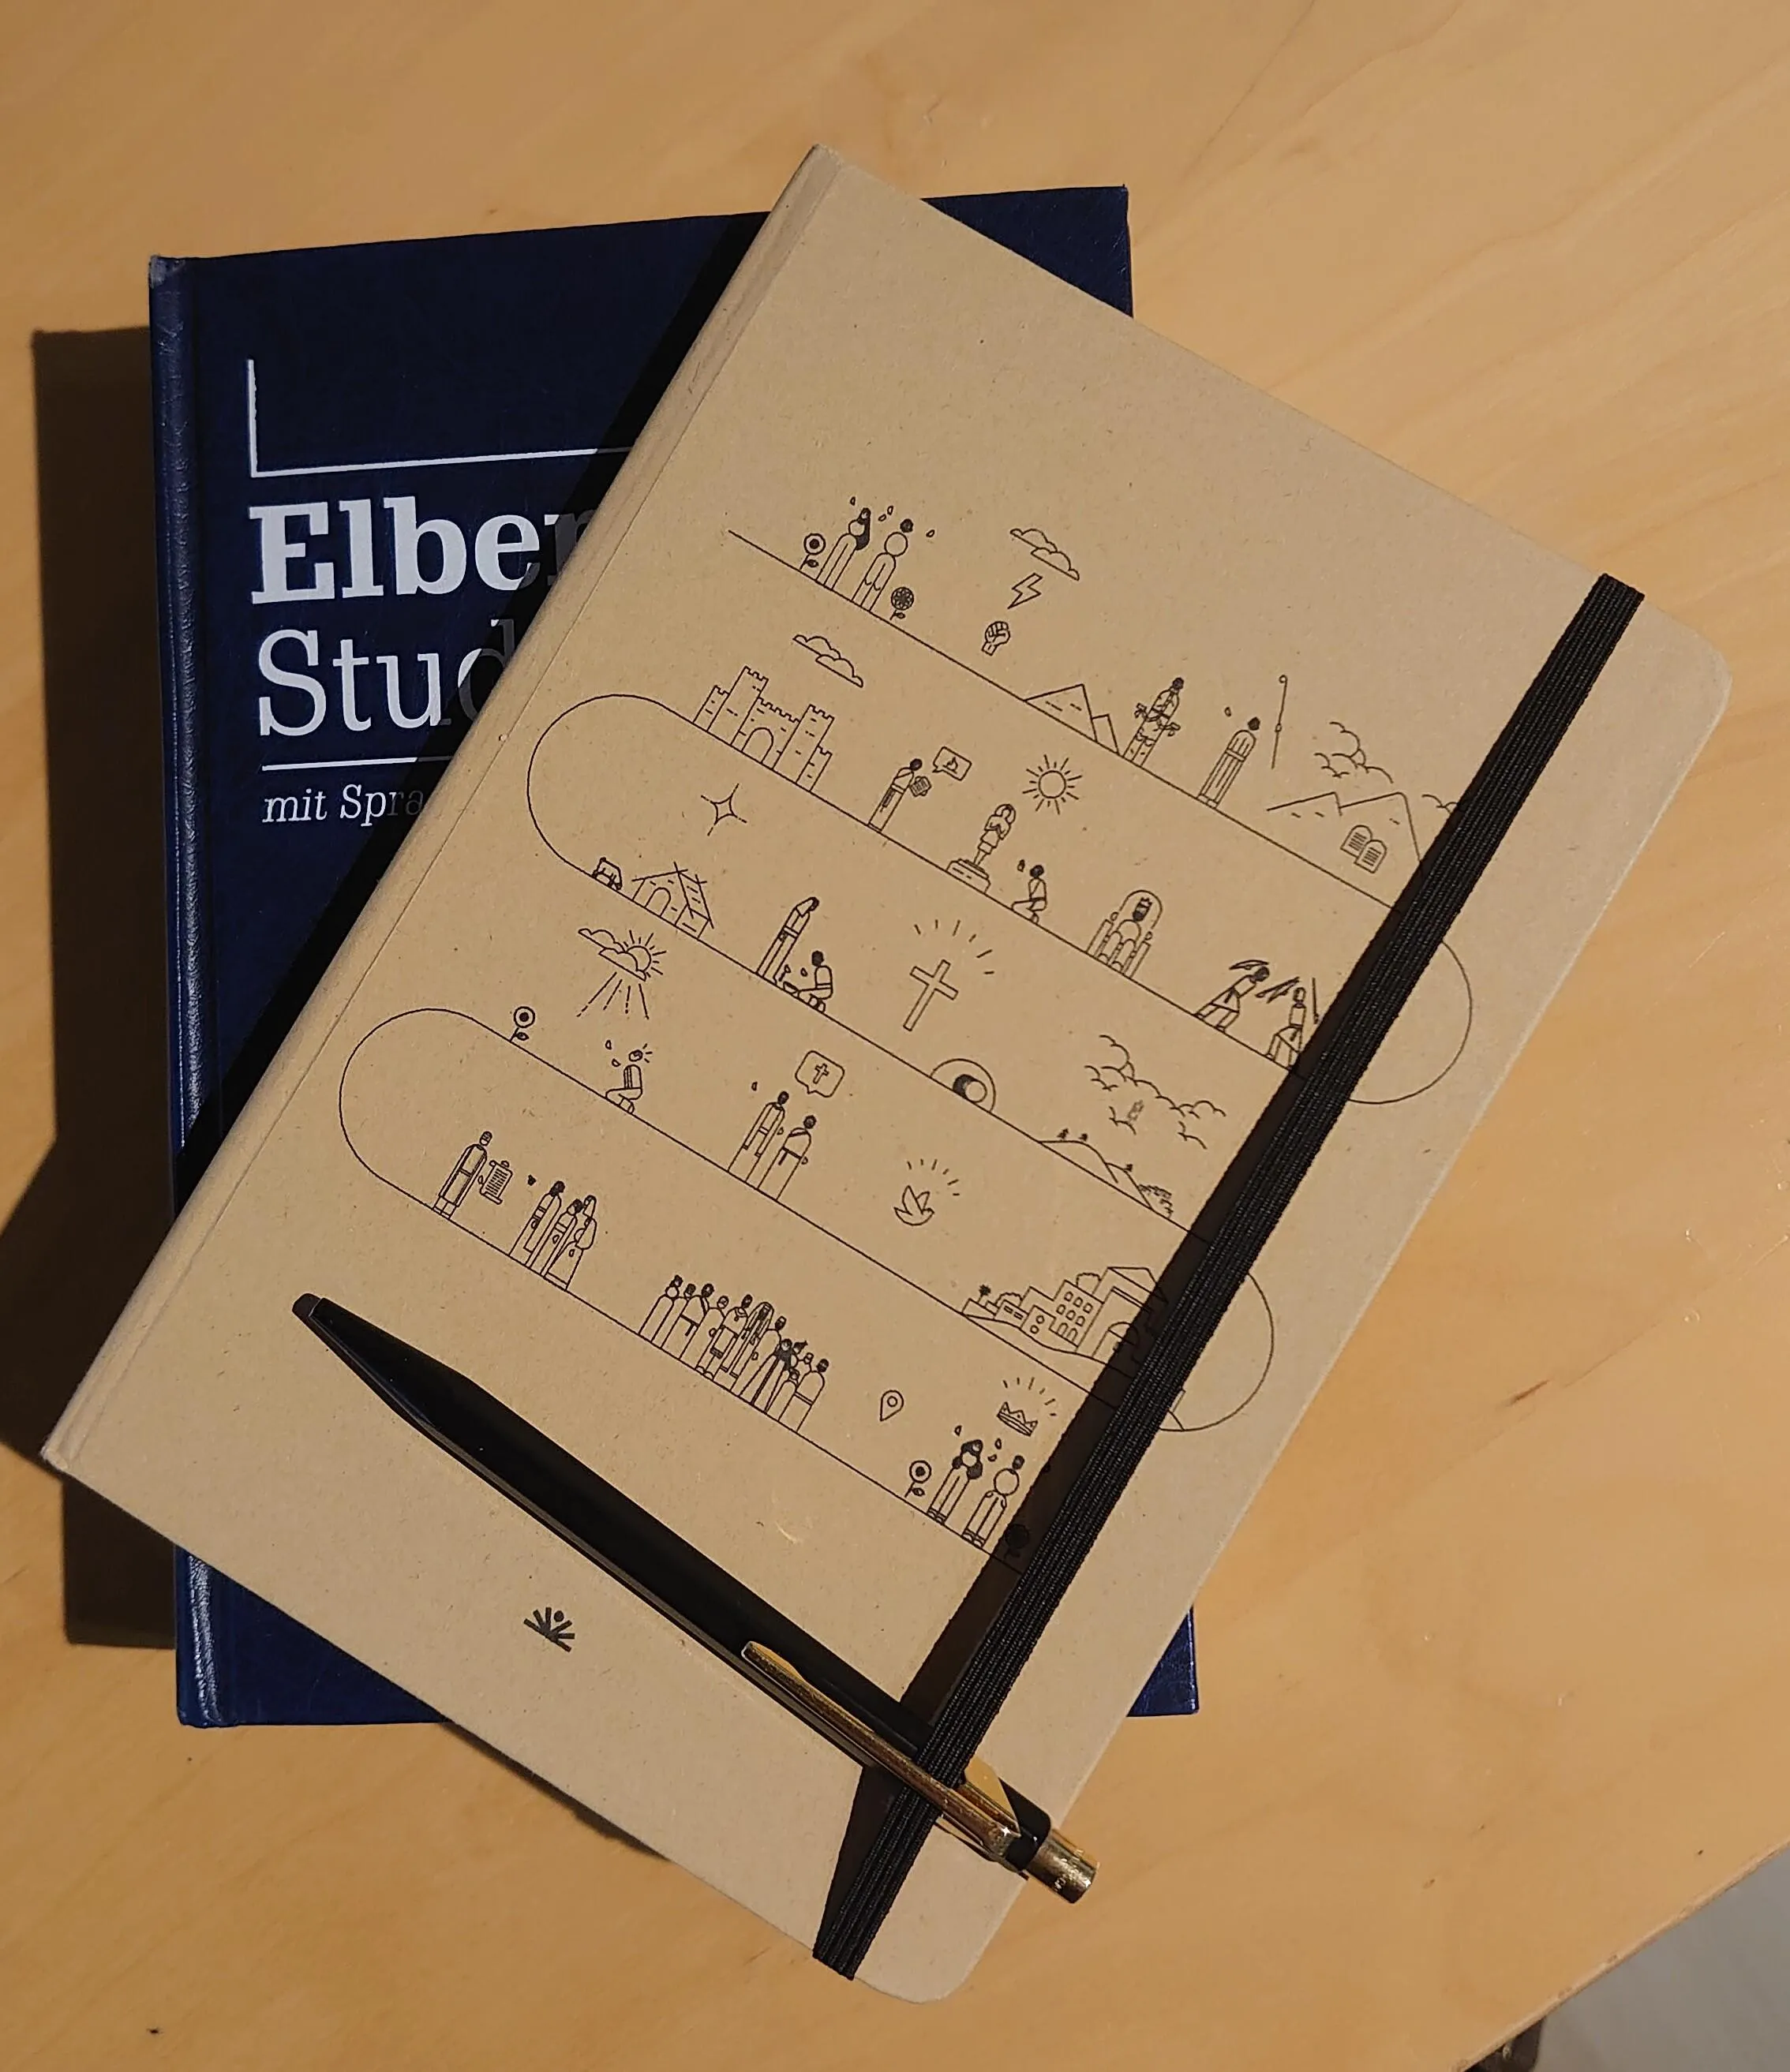 Elber
Stud
mit Spra